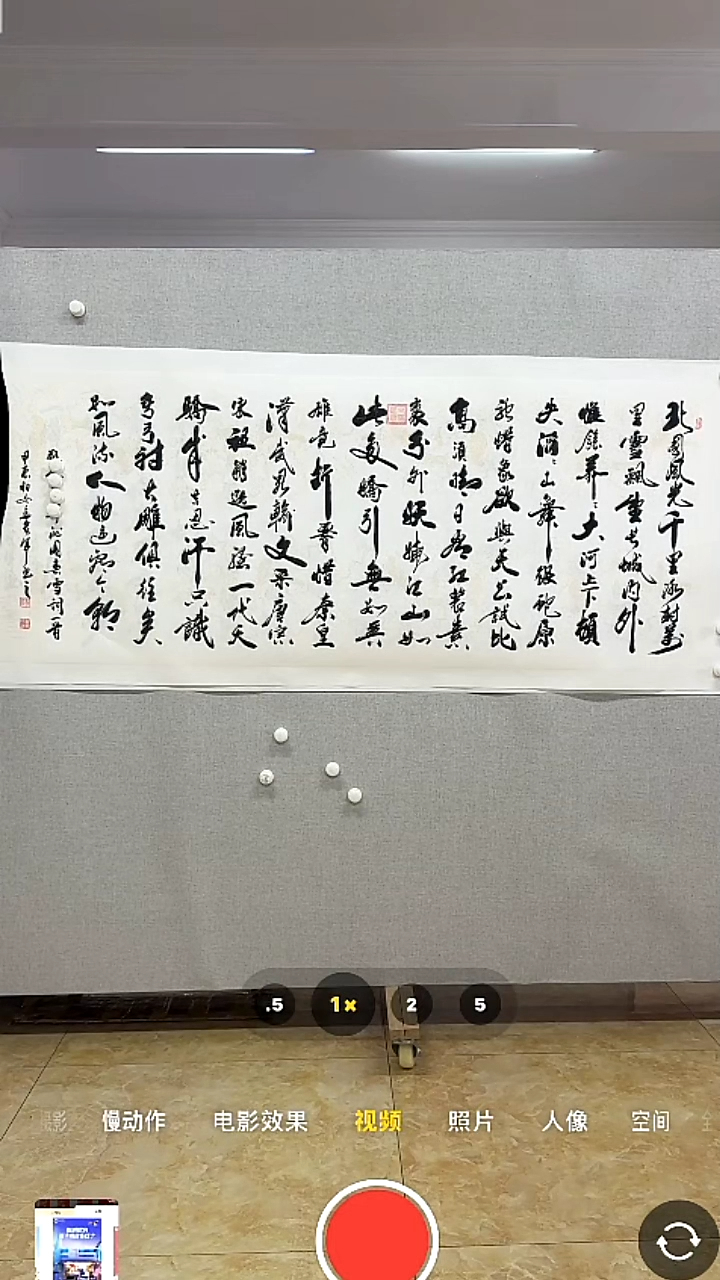 北國風光千里冰封萬
里雪飄望長城內外
惟餘莽〻大河上下頓
失滔〻山舞銀蛇原
馳蠟象欲與天公試比
高須晴日看紅裝素
裹分外妖嬈江山如
此多嬌引無數英
雄競折腰惜秦皇
漢武略輸文采唐宗
宋祖稍遜風騷一代天
驕成吉思汗只識
彎弓射大雕俱往矣
數風流人物還看今朝
沁園春雪詞一首
甲辰初冬
.5 1x 2 5
慢动作 电影效果 视频 照片 人像 空间